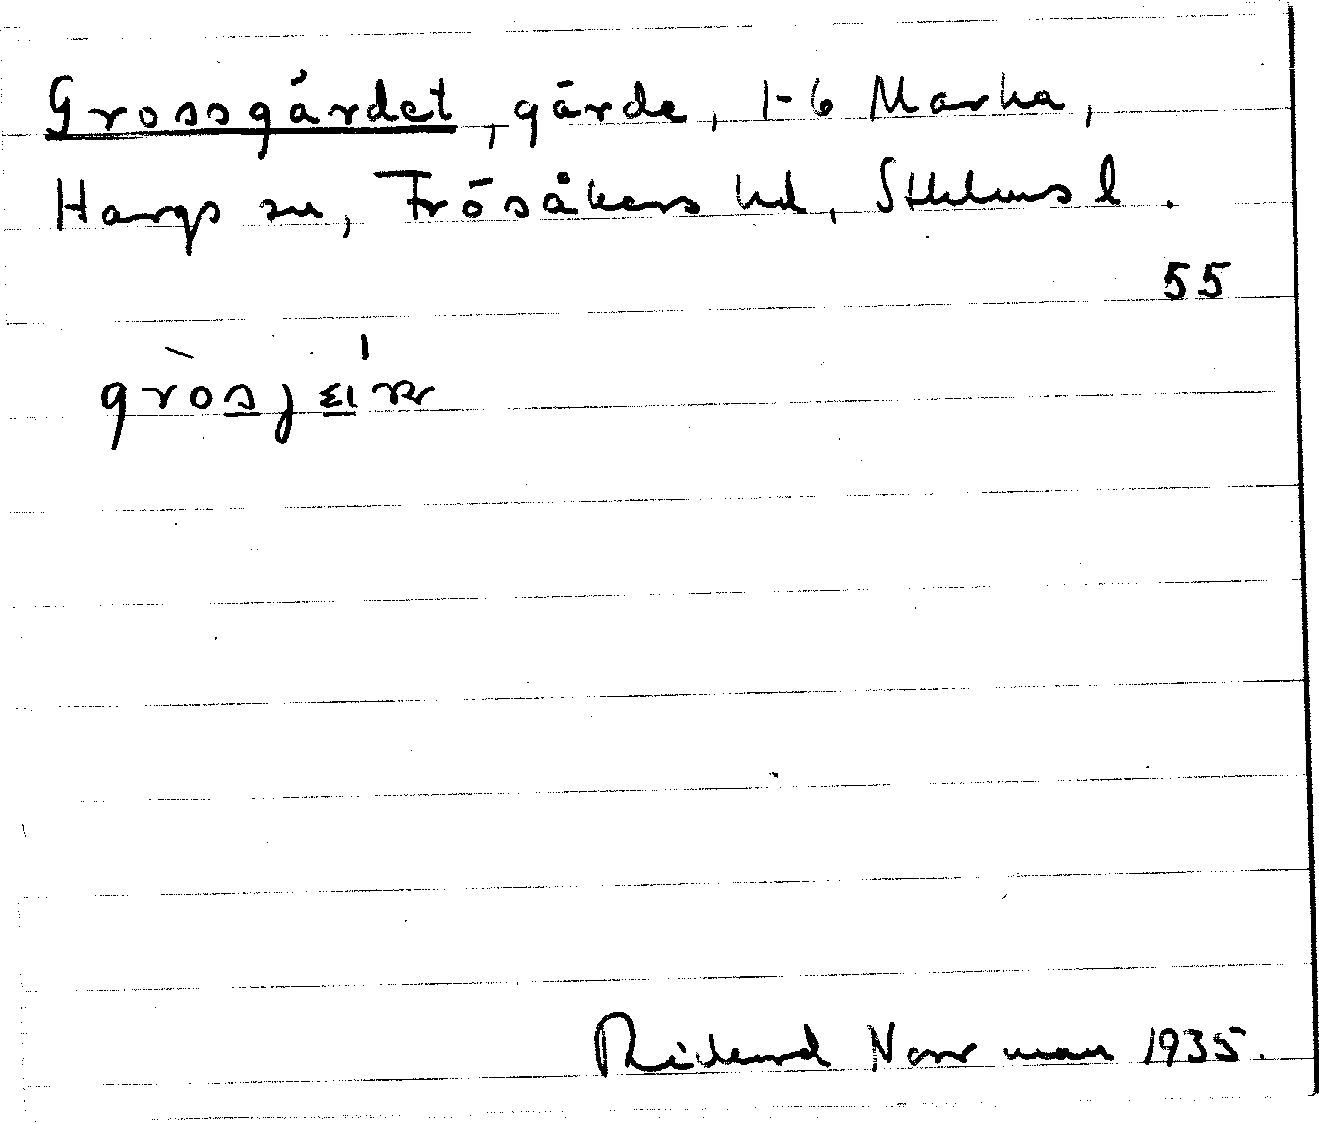 Grossgärdet, gärde, 1-6 Marka,
Hargs sn, Frösåkers hd, Sthlms l.
55
Rickard Norrman 1935.